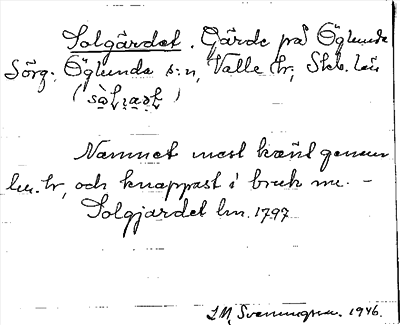 Solgärdet. Gärde på Öglunda
Sörg. Öglunda s:n, Valle hr, Skb. län
Namnet mest känt genom
lm. hr, och knappast i bruk nu. –
Solgjärdet lm. 1797
Svenningsson. 1946.